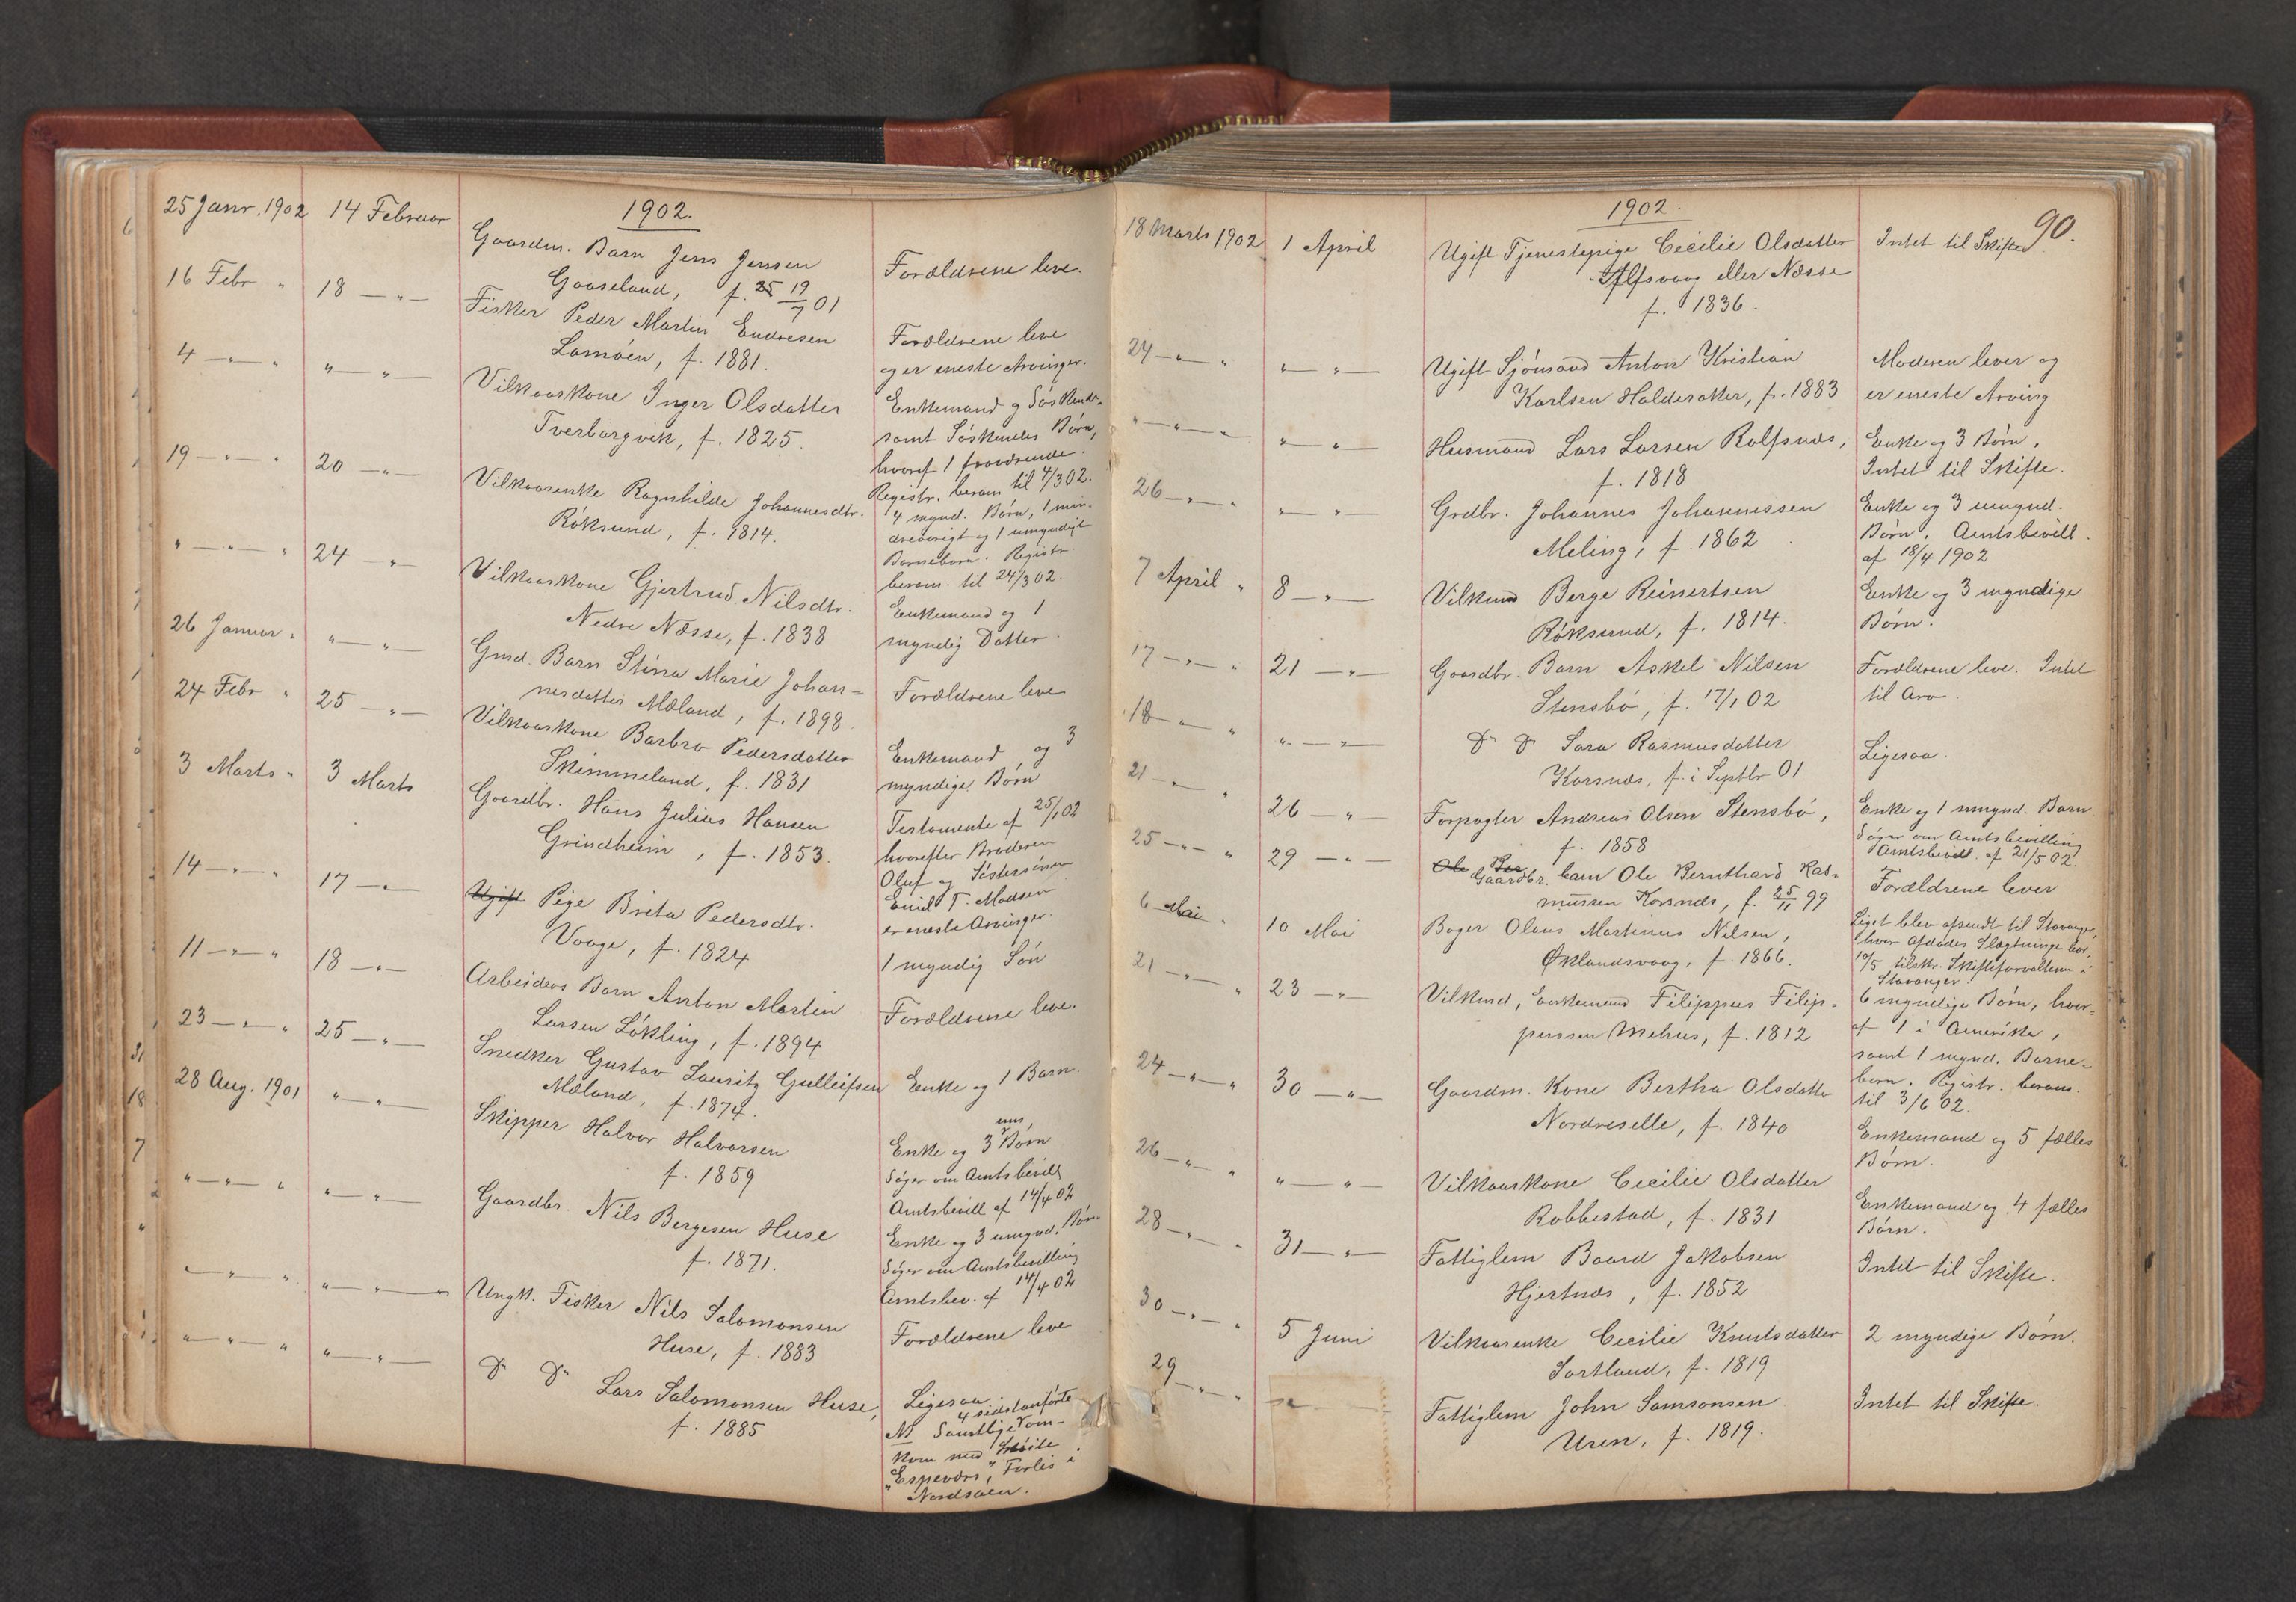 1902.
25 Janr. 1902 14 Februar Gaardm. Barn Jens Jensen
Gaaseland, f. 19/7 01 Forældrene leve.
16 Febr " 18 — " — Fisker Peder Martin Endresen Forældrene leve
Lamöen, f. 1881. og er eneste Arvinger.
4 — " — " " — " — Vilkaarskone Inger Olsdatter Enkemand og Söskende
Tverborgvik, f. 1825. samt Söskendes Börn,
hvoraf 1 fraværende.
Registr. beram til 4/3 02.
19 — " — " 20 — " — Vilkaarsenke Ragnhilde Johannesdtr. 4 mynd. Börn, 1 min-
Röksund, f. 1814. dreaarigt og 1 umyndigt
Barnebarn. Registr.
beram. til 24/3 02.
" — " — " 24 — " — Vilkaarskone Gjertrud Nilsdtr. Enkemand og 1
Nedre Næsse, f. 1838 myndig Datter.
26 Januar " " — " — Gmd. Barn Stina Marie Johan= Forældrene leve
nesdatter Mæland, f. 1898.
24 Febr " 25 — " — Vilkaarskone Barbro Pedersdatter Enkemand og 3
Skimmeland, f. 1831 myndige Börn
3 Marts " 3 Marts Gaardbr. Hans Julius Hansen Testamente af 25/1 02
Grindheim, f. 1853. hvorefter Broderen
Oluf og Söstersönnen
Emil T. Madsen
er eneste Arvinger.
14 — " — " 17 — " — Ugift Pige Brita Pedersdtr. 1 myndig Sön
Vaage, f. 1824
11 — " — " 18 — " — Arbeiders Barn Anton Martin Forældrene leve.
Larsen Lökling, f. 1894
23 — " — " 25 — " — Snedker Gustav Lauritz Gulleifsen Enke og 1 Barn.
Mæland, f. 1874.
28 Aug. 1901 " — " — Skipper Halvor Halvorsen Enke og 3 um, Börn
f. 1859 Söger om Amtsbevill
Amtsbevill af 14/4 02
" — " — " " — " — Gaardbr. Nils Bergesen Huse Enke og 3 umynd. Börn
f. 1871. Söger om Amtsbevilling
Amtsbev. af 14/4 02
" — " — " " — " — " Ungk. Fisker Nils Salomonsen Forældrene leve
Huse, f. 1883
" — " — " " — " — Do Do Lars Salomonsen Huse, Ligesaa.
f. 1885 4 sidstanförte
NB Samtlige om-
kom med Sköite
"Espevær", Forlis i
Nordsöen.
1902.
90.
18 Marts 1902 1 April Ugift Tjenestepige Cecilie Olsdatter Intet til Skifte
Alfsvaag eller Næsse
f. 1836.
24 — " — " " — " — Ugift Sjömand Anton Kristian Moderen lever og
Karlsen Halderaker, f. 1883 er eneste Arving
" — " — " — " — " — Husmand Lars Larsen Rolfsnæs, Enke og 3 Börn.
f. 1818 Intet til Skifte.
26 — " — " " — " — Grdbr. Johannes Johannessen Enke og 3 umynd.
Meling, f. 1862 Börn. Amtsbevill.
af 18/4 1902
7 April " 8 — " — Vilkmd Berge Reinertsen Enke og 3 myndige
Röksund, f. 1814. Börn.
17 — " — " 21 — " — Gaardbr. Barn Askel Nilsen Forældrene leve. Intet
Stensbö, f. 17/1 02 til Arv.
18 — " — " " — " — Do Do Sara Rasmusdatter Ligesaa.
Korsnæs, f. i Septbr 01
21 — " — " 26 — " — Forpagter Andreas Olsen Stensbö, Enke og 1 umynd. Barn
f. 1858 Söger om Amtsbevilling
Amtsbevill. af 21/5 02.
25 — " — " 29 — " — Ole Ber
Gaardbr. barn Ole Bernthard Ras- Forældrene lever
mussen Korsnæs, f. 25/11 99
6 Mai " 10 Mai Bager Olaus Martinus Nilsen, Liget blev afsendt til Stavanger,
Øklandsvaag, f. 1866. hvor Afdødes Slægtninge bor,
10/5 tilskr. Skifteforvalteren i
Stavanger
21 — " — " 23 — " — Vilkmd, Enkemand Filippus Filip- 6 myndige Börn, hvor-
pussen Mehus, f. 1812 af 1 i Amerika,
samt 1 mynd. Barne-
barn. Registr. beram.
til 3/6 02.
24 — " — " 30 — " — Gaardm. Kone Bertha Olsdatter Enkemand og 5 fælles
Nordreselle, f. 1840 Börn.
26 — " — " " — " — Vilkaarskone Cecilie Olsdatter Enkemand og 4 fælles
Robbestad, f. 1831 Börn.
28 — " — " 31 — " — Fattiglem Baard Jakobsen Intet til Skifte.
Hjertnæs, f. 1852
30 — " — " 5 Juni Vilkaarsenke Cecilie Knutsdatter 2 myndige Börn.
Sortland, f. 1819
29 — " — " Fattiglem John Samsonsen Intet til Skifte.
Uren, f. 1819.